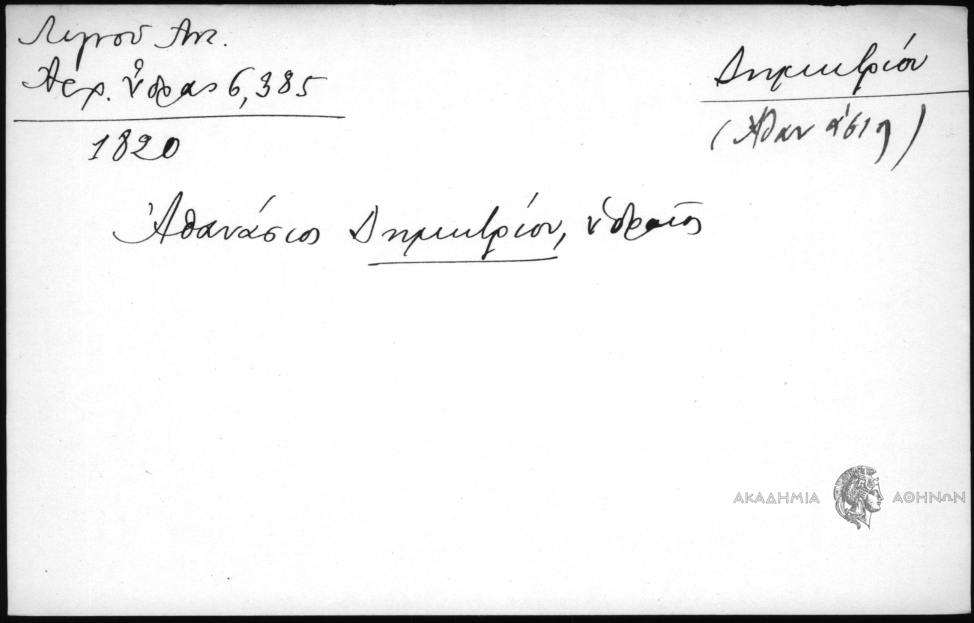 Λιγνού Αντ.
Αρχ. Ύδρας 6, 385
1820
Δημητρίου
(Αθανάσιος)
Ἀθανάσιος Δημητρίου, ὑδραῖος
ΑΚΑΔΗΜΙΑ ΑΘΗΝΩΝ